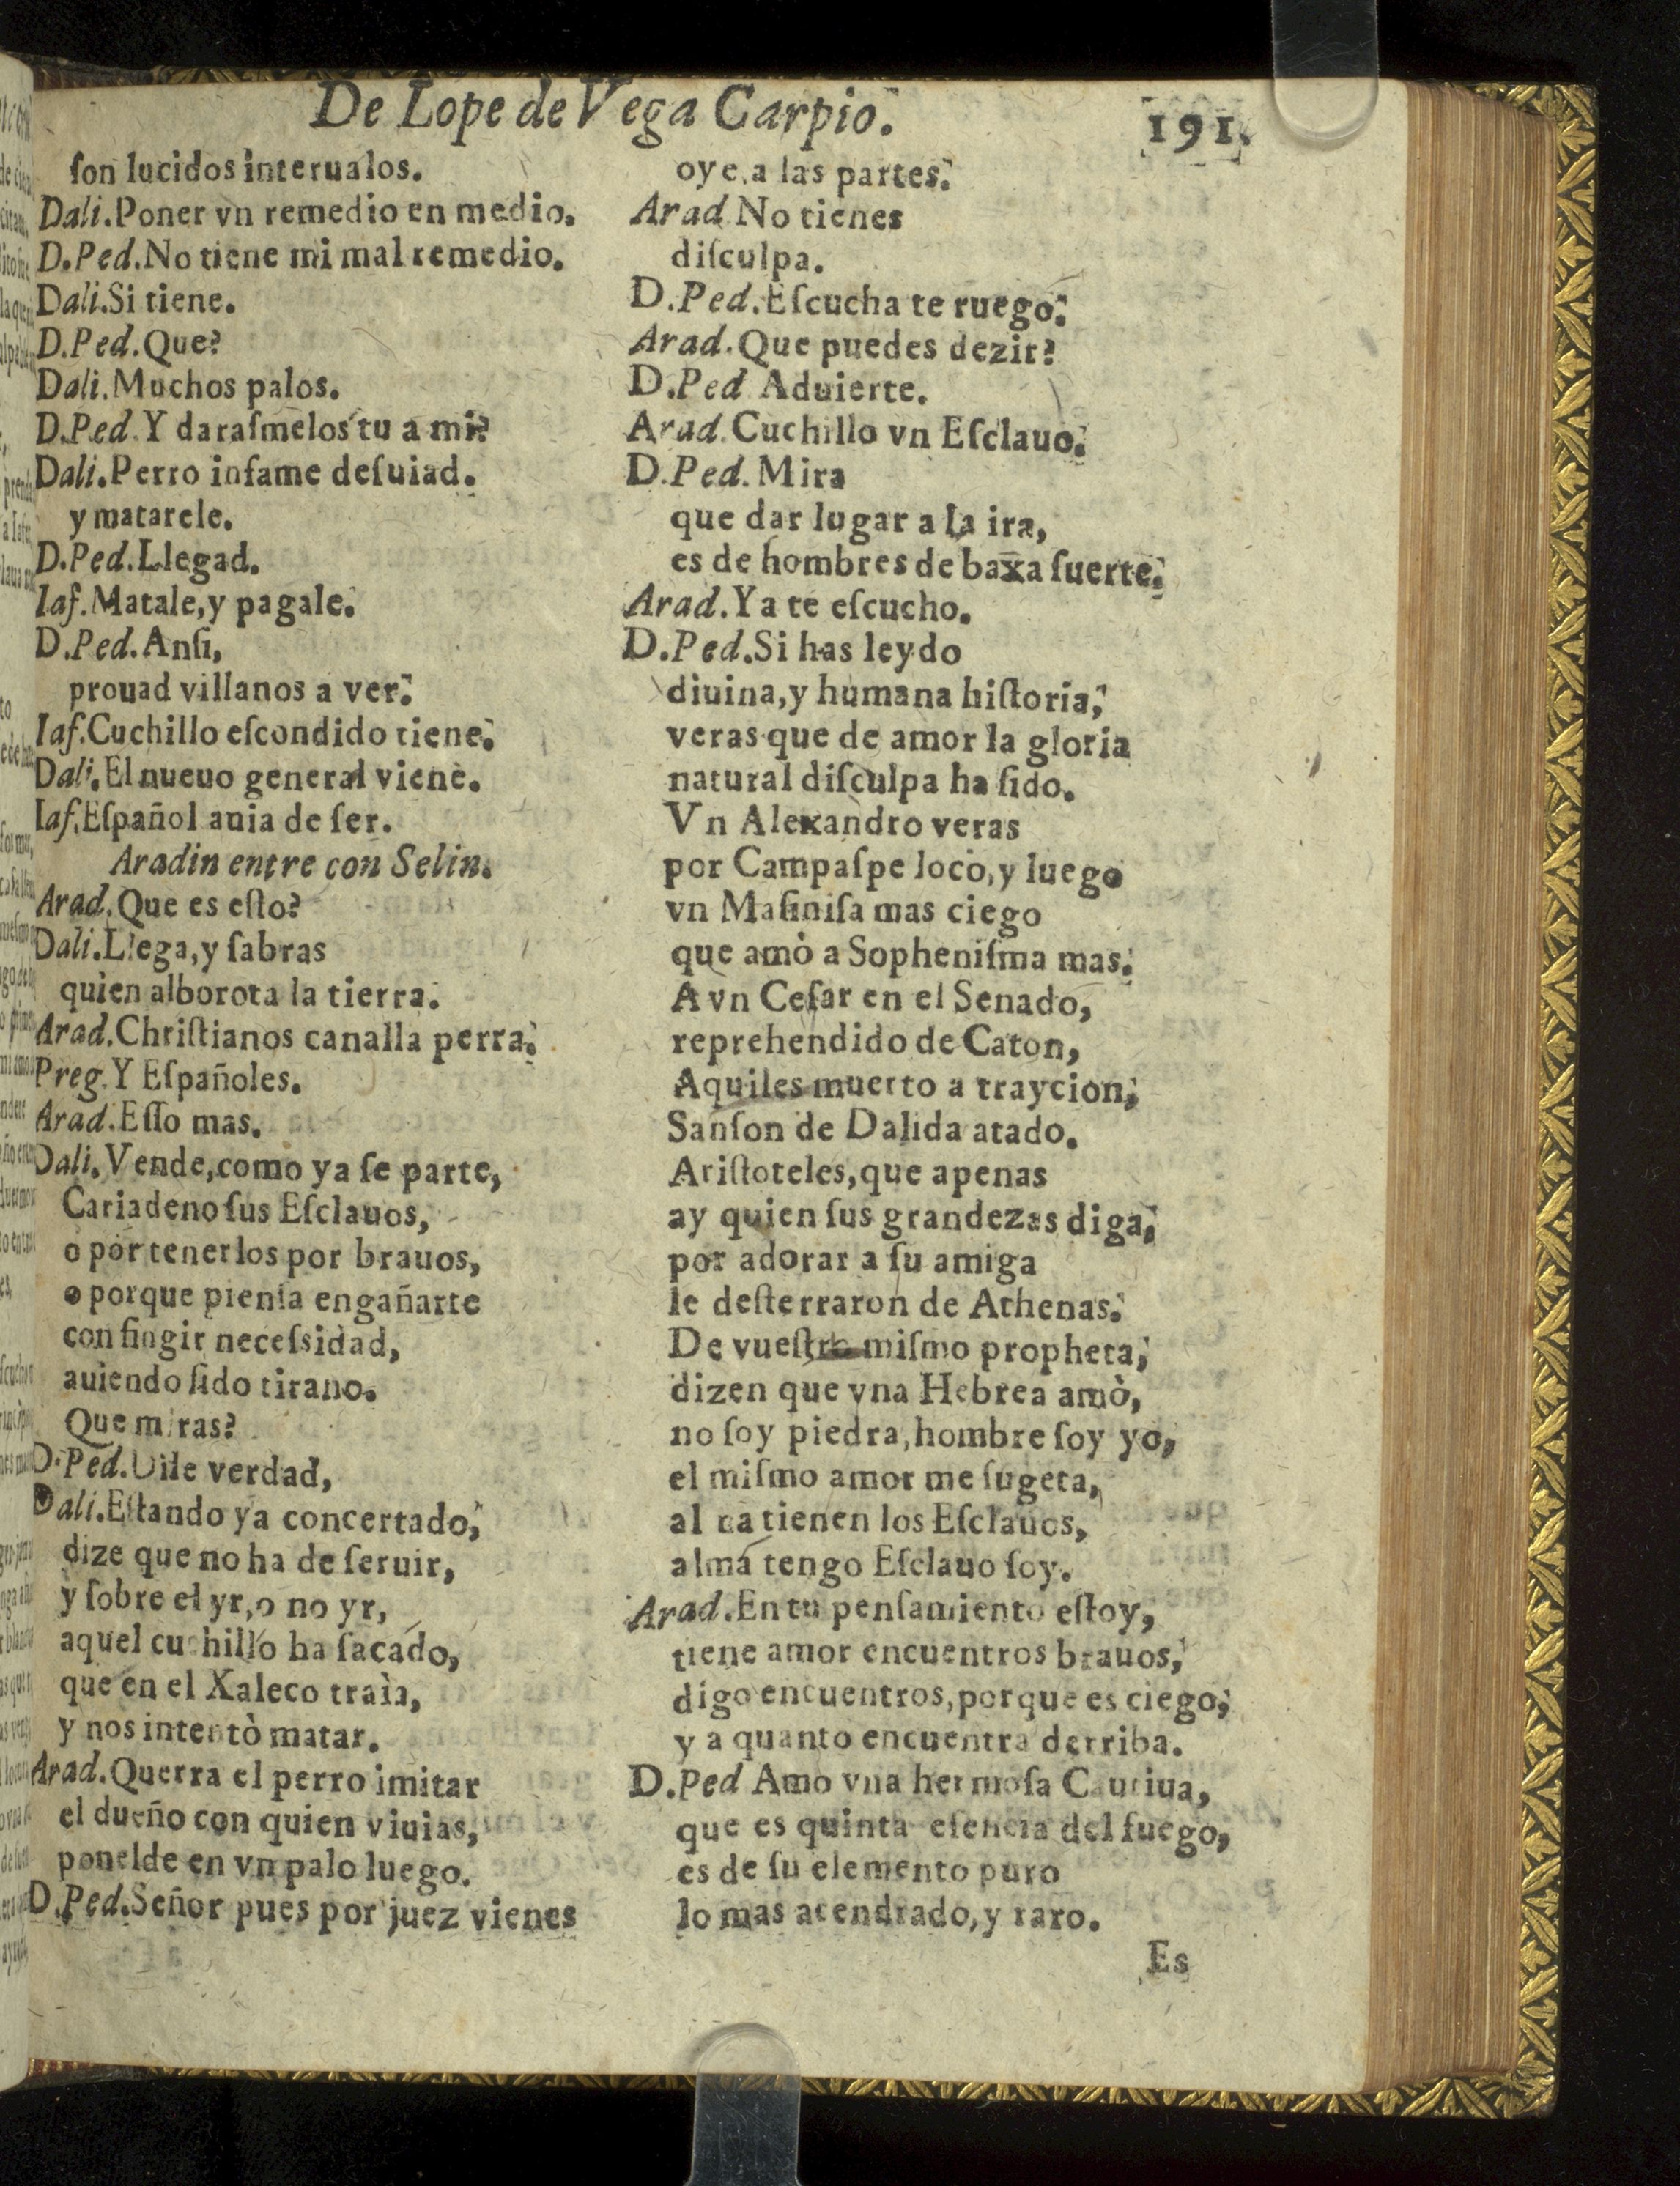 De Lope de Vega Carpio.
191.
ſon lucidos interualos.
Dali.Poner vn remedio en medio.
D.Ped.No tiene mi mal remedio.
Dali.Si tiene.
D.Ped.Que?
Dali.Muchos palos.
D.Ped.Y daraſmelos tu a mi?
Dali.Perro infame deſuiad.
y matarele.
D.Ped.Llegad.
Iaf.Matale,y pagale.
D.Ped.Anſi,
prouad villanos a ver.
Iaf.Cuchillo eſcondido tiene.
Dali.El nueuo general viene.
Iaf.Eſpañol auia de ſer.
Aradin entre con Selin.
Arad.Que es eſto?
Dali.Llega,y ſabras
quien alborota la tierra.
Arad.Chriſtianos canalla perra.
Preg.Y Eſpañoles.
Arad.Eſſo mas.
Dali.Vende,como ya ſe parte,
Cariadeno ſus Eſclauos,
o por tenerlos por brauos,
o porque pienſa engañarte
con fingir neceſsidad,
auiendo ſido tirano.
Que miras?
D.Ped.Dile verdad,
Dali.Eſtando ya concertado,
dize que no ha de ſeruir,
y ſobre el yr,o no yr,
aquel cuchillo ha ſacado,
que en el Xaleco traìa,
y nos intentò matar.
Arad.Querra el perro imitar
el dueño con quien viuias,
ponelde en vn palo luego.
D.Ped.Señor pues por juez vienes
oye,a las partes.
Arad.No tienes
diſculpa.
D.Ped.Eſcucha te ruego.
Arad.Que puedes dezir?
D.Ped Aduierte.
Arad.Cuchillo vn Eſclauo.
D.Ped.Mira
que dar lugar a la ira,
es de hombres de baxa ſuerte.
Arad.Ya te eſcucho.
D.Ped.Si has leydo
diuina,y humana hiſtoria,
veras que de amor la gloria
natural diſculpa ha ſido.
Vn Alexandro veras
por Campaſpe loco,y luego
vn Maſiniſa mas ciego
que amò a Sopheniſma mas.
A vn Ceſar en el Senado,
reprehendido de Caton,
Aquiles muerto a traycion,
Sanſon de Dalida atado.
Ariſtoteles,que apenas
ay quien ſus grandezas diga,
por adorar a ſu amiga
le deſterraron de Athenas.
De vueſtro miſmo propheta,
dizen que vna Hebrea amò,
no ſoy piedra,hombre ſoy yo,
el miſmo amor me ſugeta,
al na tienen los Eſclauos,
alma tengo Eſclauo ſoy.
Arad.En tu penſamiento eſtoy,
tiene amor encuentros brauos,
digo encuentros,porque es ciego,
y a quanto encuentra derriba.
D.Ped Amo vna hermoſa Cautiua,
que es quinta eſencia del fuego,
es de ſu elemento puro
lo mas acendrado,y raro.
Es